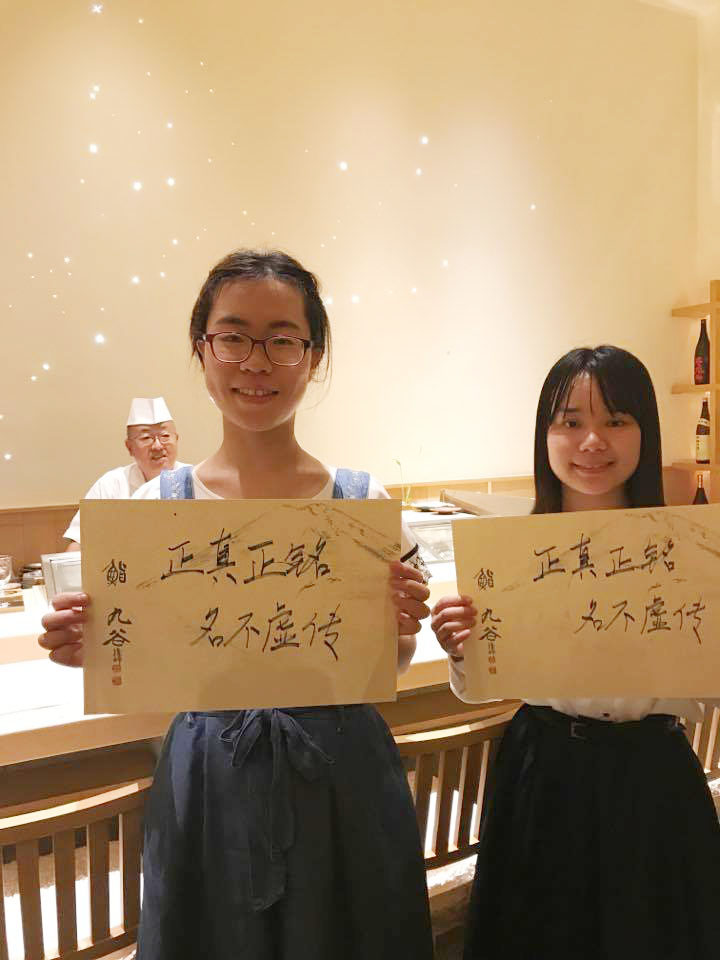 正真正銘
名不虚传
鮨 九谷
正真正銘
名不虚传
鮨 九谷